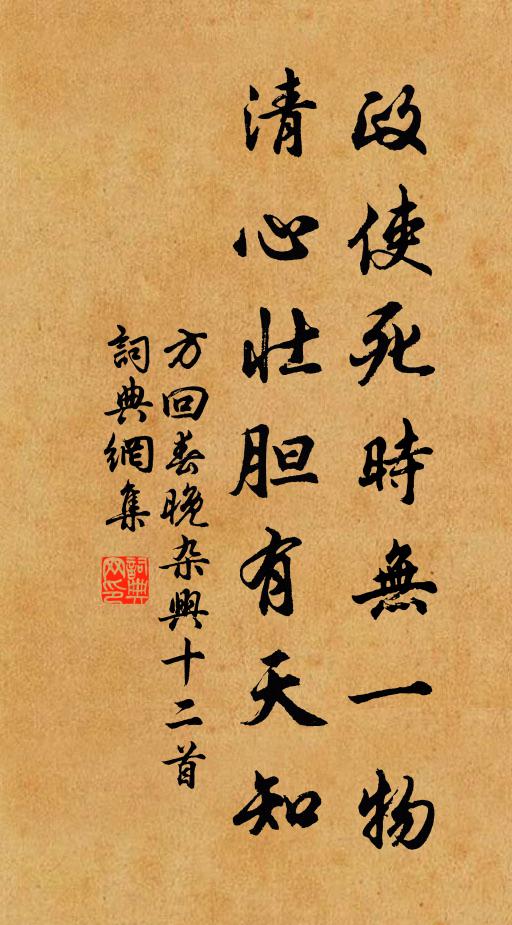 政使死時無一物
清心壯胆有天知
方回春晚杂興十二首
詞典網集
詞典网印